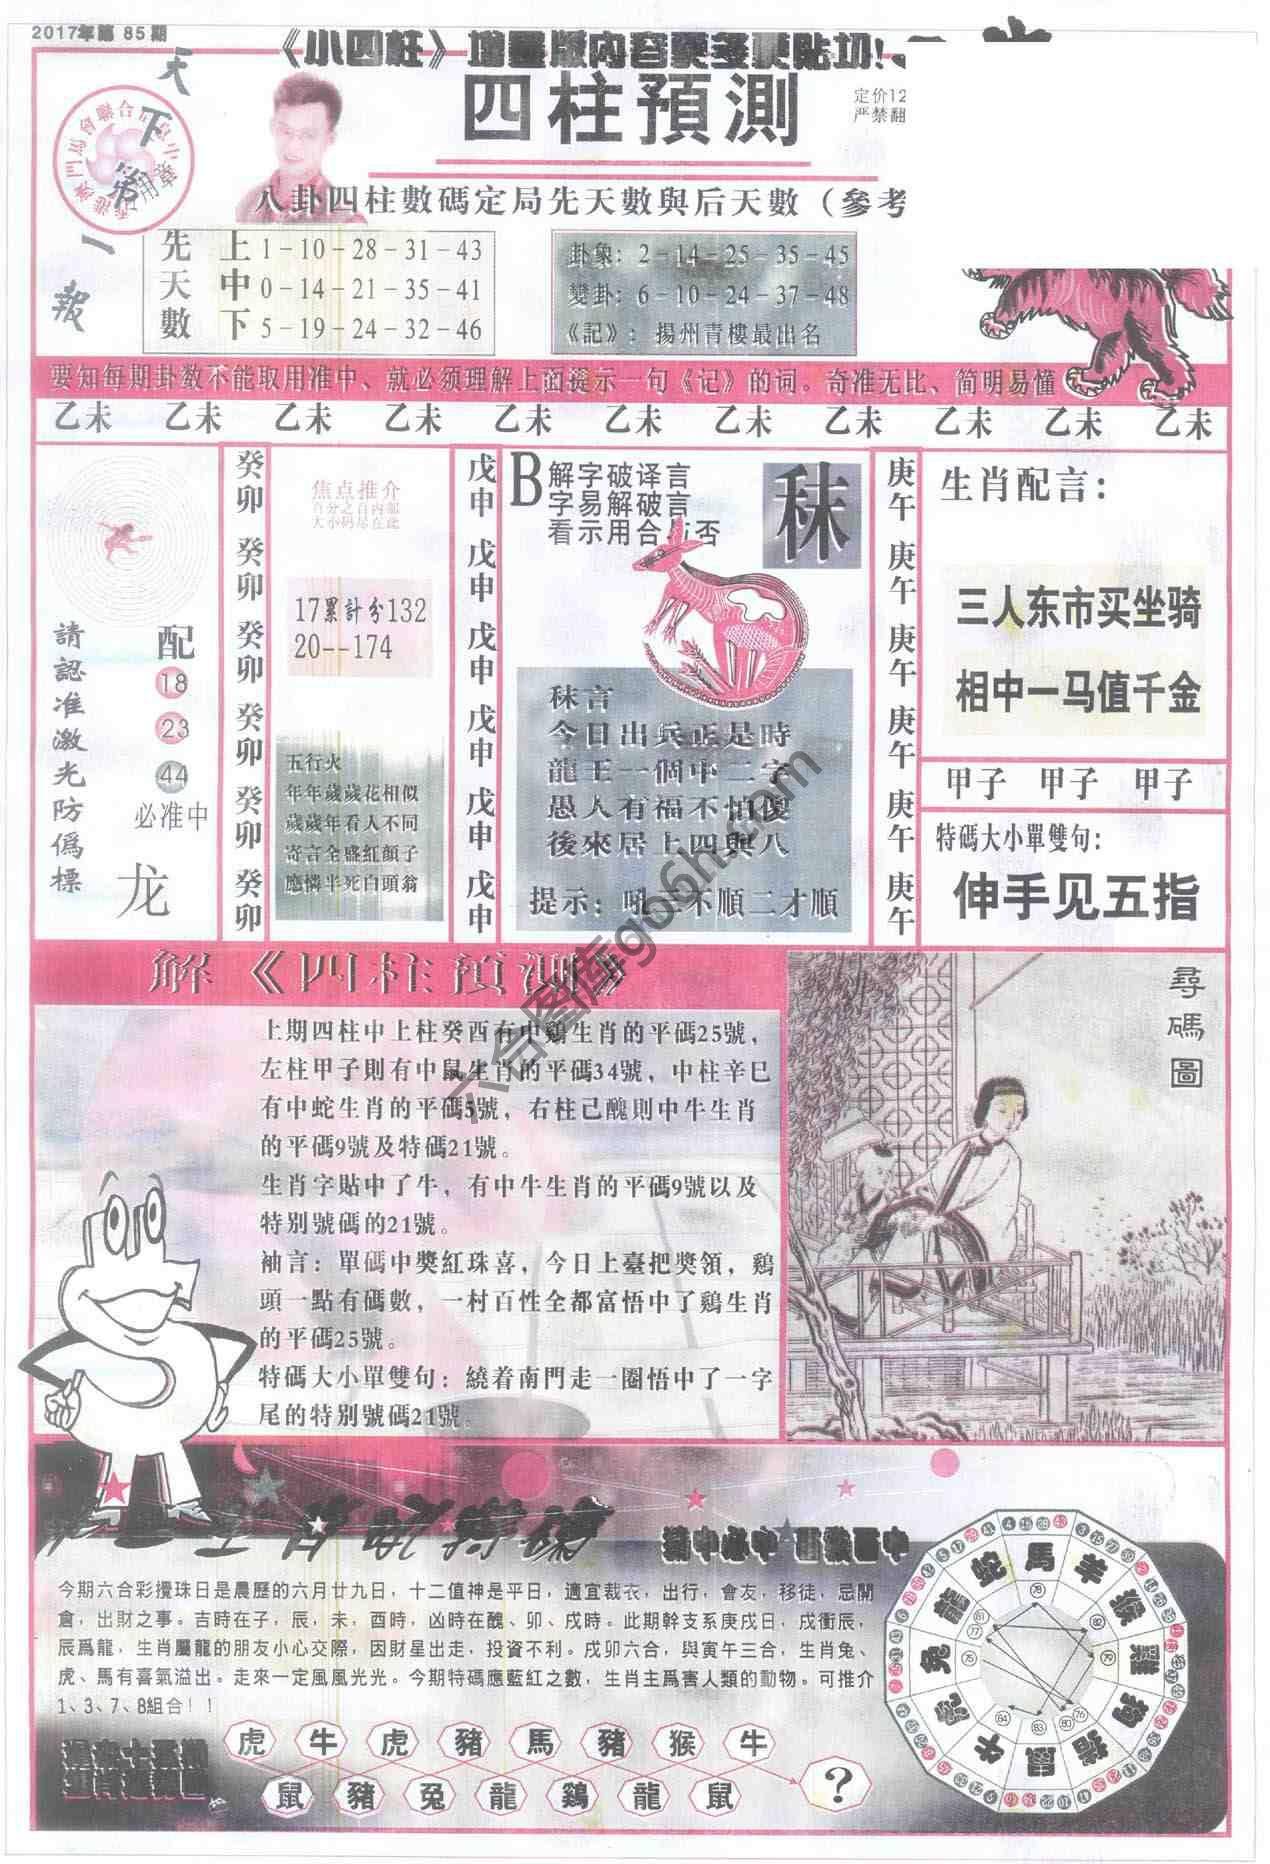 2017年第 85 期
《小四柱》增量版内容更多更贴切!
天下第一報
四柱預測
定价12
严禁翻
八卦四柱數碼定局先天數與后天數（參考
先天數
上 1-10-28-31-43
中 0-14-21-35-41
下 5-19-24-32-46
卦象: 2-14-25-35-45
變卦: 6-10-24-37-48
《記》: 揚州青樓最出名
要知每期卦数不能取用准中、就必须理解上面提示一句《记》的词。奇准无比、简明易懂
乙未 乙未 乙未 乙未 乙未 乙未 乙未 乙未 乙未 乙未 乙未
請認准激光防僞標
配
18
23
44
必准中
龙
癸卯 癸卯 癸卯 癸卯 癸卯 癸卯
焦点推介
百分之百内部
大小码尽在此
17累計分132
20--174
五行火
年年歲歲花相似
歲歲年看人不同
寄言全盛紅顔子
應憐半死白頭翁
戊申 戊申 戊申 戊申 戊申 戊申
B
解字破译言
字易解破言
看示用合与否
秣
秣言
今日出兵正是時
龍王一個中二字
愚人有福不怕傻
後來居上四與八
提示: 吼 不順二才順
庚午 庚午 庚午 庚午 庚午 庚午
生肖配言:
三人东市买坐骑
相中一马值千金
甲子 甲子 甲子
特碼大小單雙句:
伸手见五指
解《四柱預測》
上期四柱中上柱癸酉有中鷄生肖的平碼25號，
左柱甲子則有中鼠生肖的平碼34號，中柱辛巳
有中蛇生肖的平碼5號，右柱己醜則中牛生肖
的平碼9號及特碼21號。
生肖字貼中了牛，有中牛生肖的平碼9號以及
特別號碼的21號。
袖言: 單碼中獎紅珠喜，今日上臺把獎領，鷄
頭一點有碼數，一村百性全都富悟中了鷄生肖
的平碼25號。
特碼大小單雙句: 繞着南門走一圈悟中了一字
尾的特别號碼21號。
尋碼圖
六合图库go6h.com
今期六合彩攪珠日是農歷的六月廿九日，十二值神是平日，適宜裁衣，出行，會友，移徒，忌開
倉，出財之事。吉時在子，辰，未，酉時，凶時在醜、卯、戌時。此期幹支系庚戌日，戌衝辰，
辰爲龍，生肖屬龍的朋友小心交際，因財星出走，投資不利。戌卯六合，與寅午三合，生肖兔、
虎、馬有喜氣溢出。走來一定風風光光。今期特碼應藍紅之數，生肖主爲害人類的動物。可推介
1、3、7、8組合！！
虎 牛 虎 豬 馬 豬 猴 牛
鼠 豬 兔 龍 鷄 龍 鼠
?
馬 羊 猴 雞 狗 豬 鼠 牛 虎 兔 龍 蛇